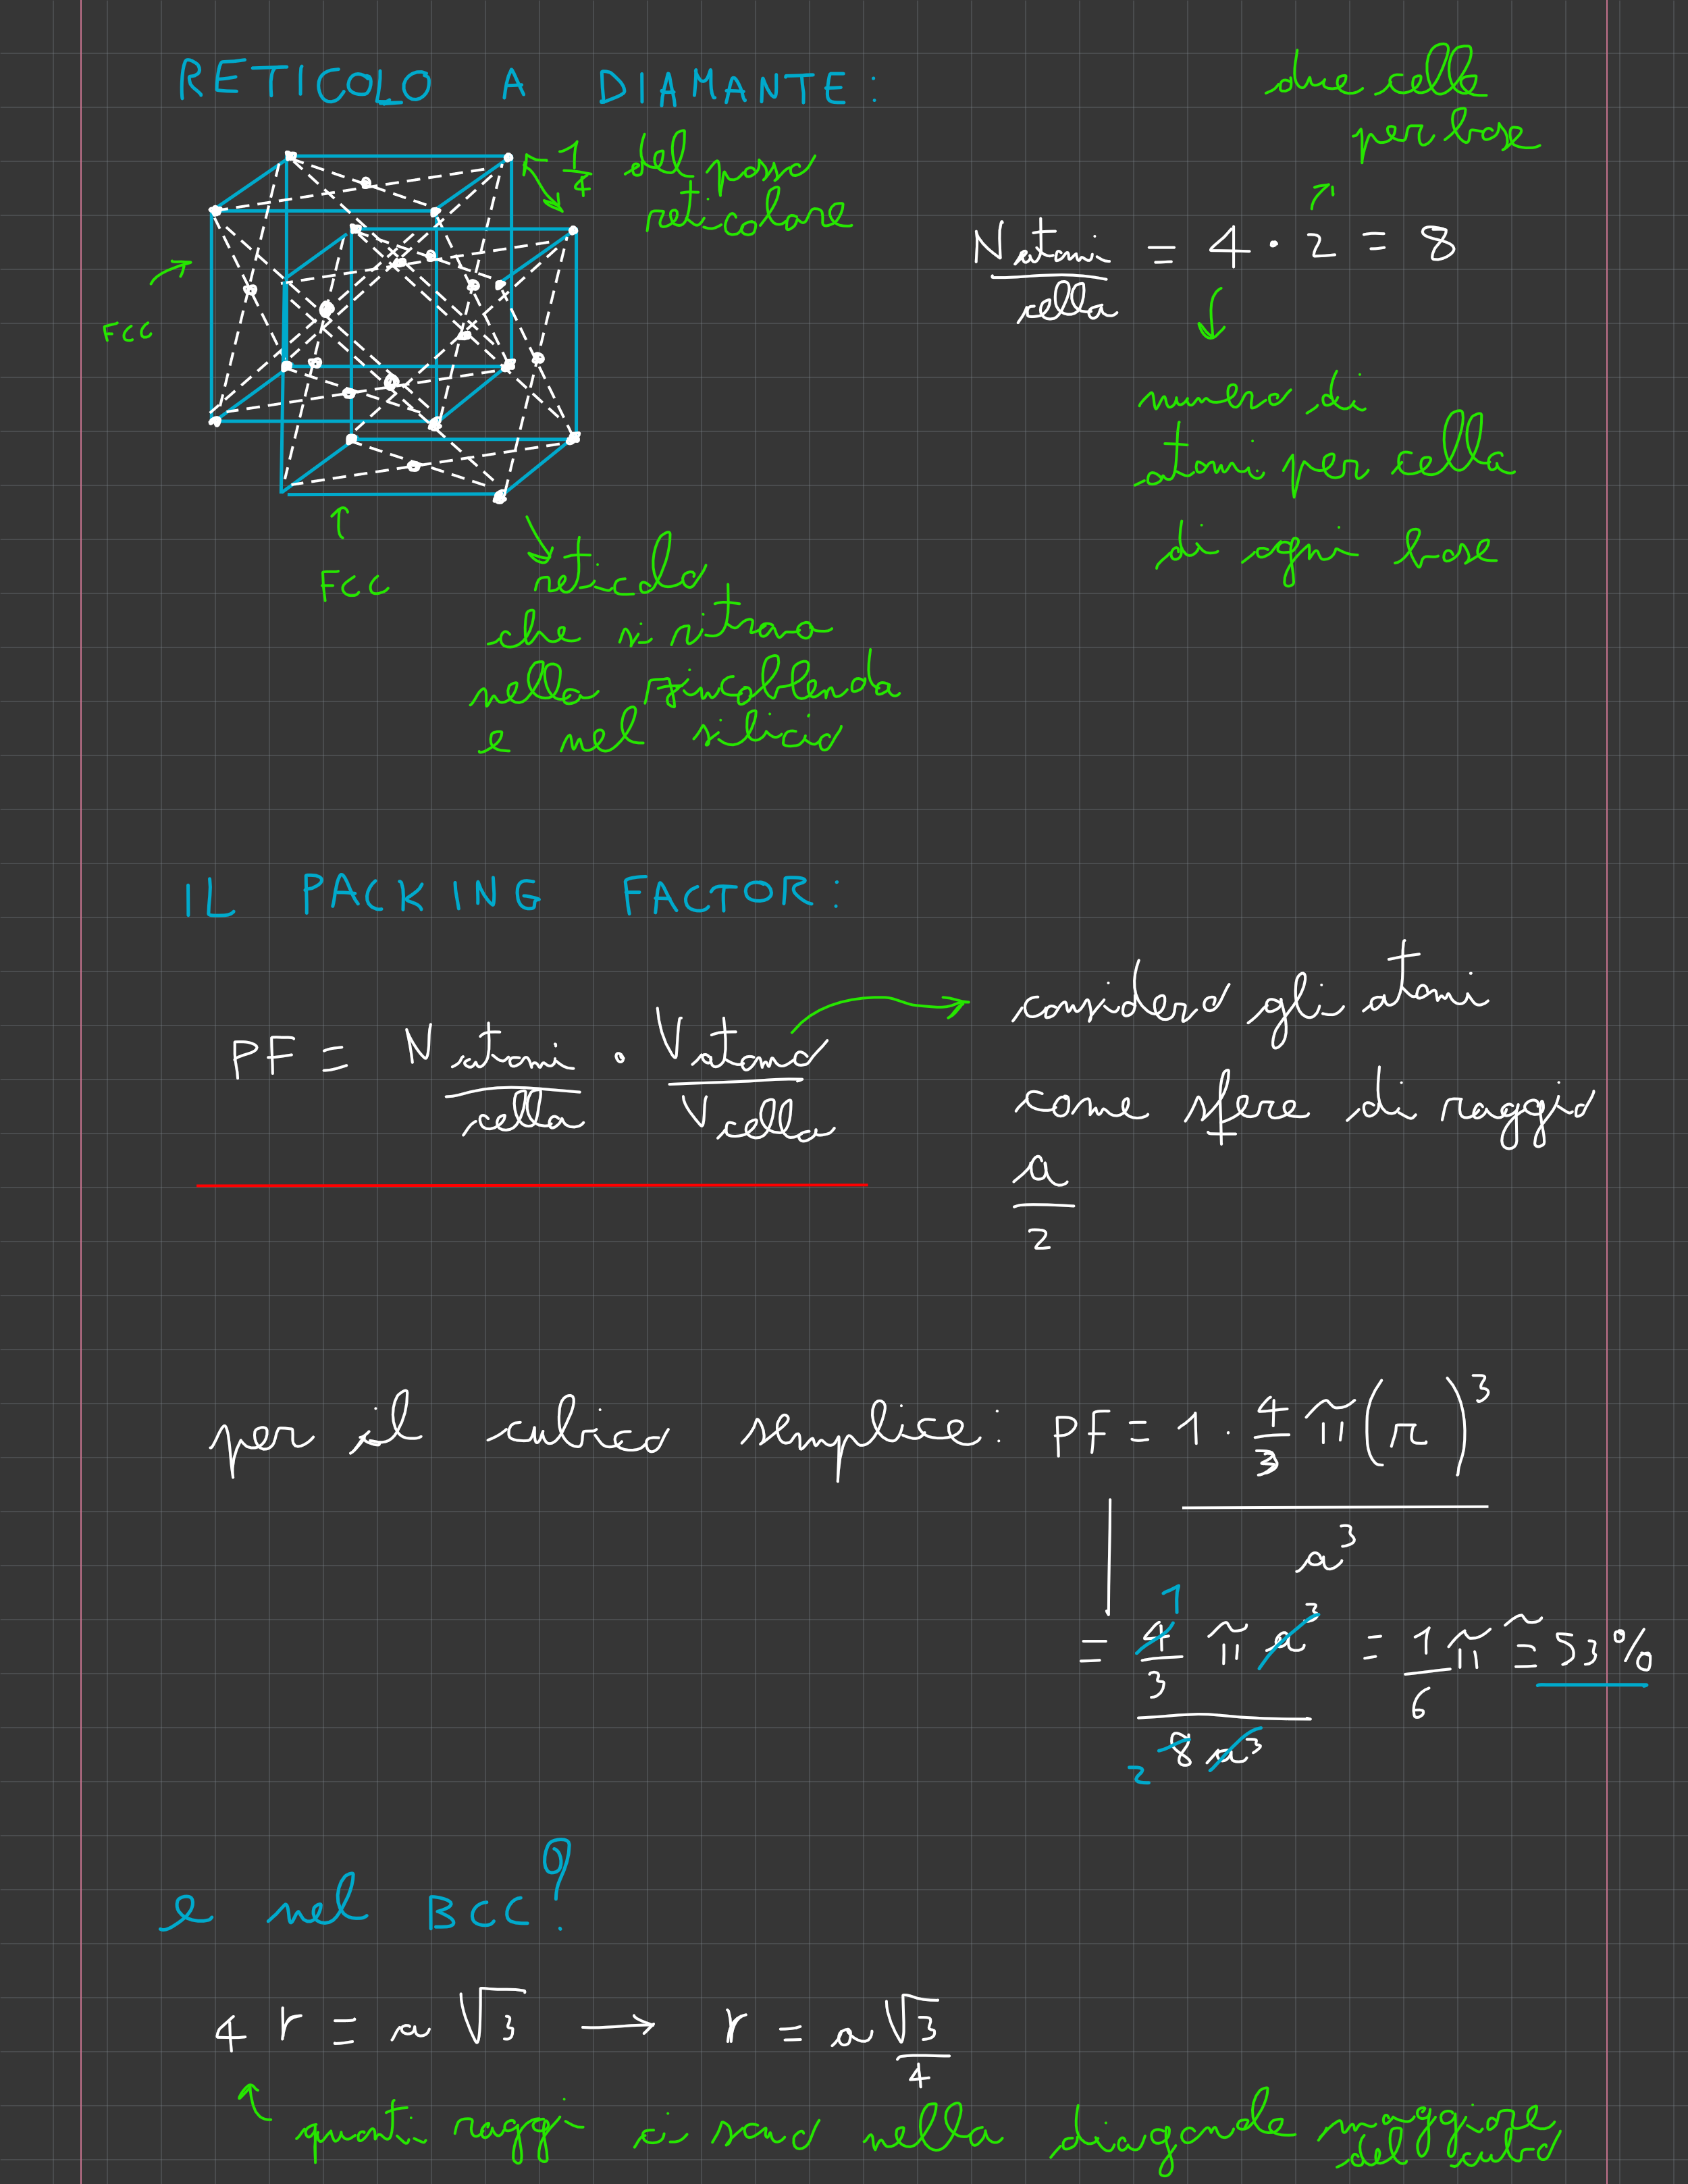 RETICOLO A DIAMANTE:
1/4 del passo
reticolare
FCC
FCC
reticolo
che si ritrova
nella zincoblenda
e nel silicio
due celle
per base
N atomi/cella = 4 · 2 = 8
numero di
atomi per cella
di ogni base
IL PACKING FACTOR:
PF = N atomi/cella · V atomo / V cella
considero gli atomi
come sfere di raggio
a/2
per il cubico semplice: PF = 1 · 4/3 π (r)³ / a³
= 4/3 π a³ / 8 a³ = 1/6 π ≅ 53%
1
2
e nel BCC?
4 r = a √3 → r = a √3/4
quanti raggi ci sono nella diagonale maggiore
del cubo